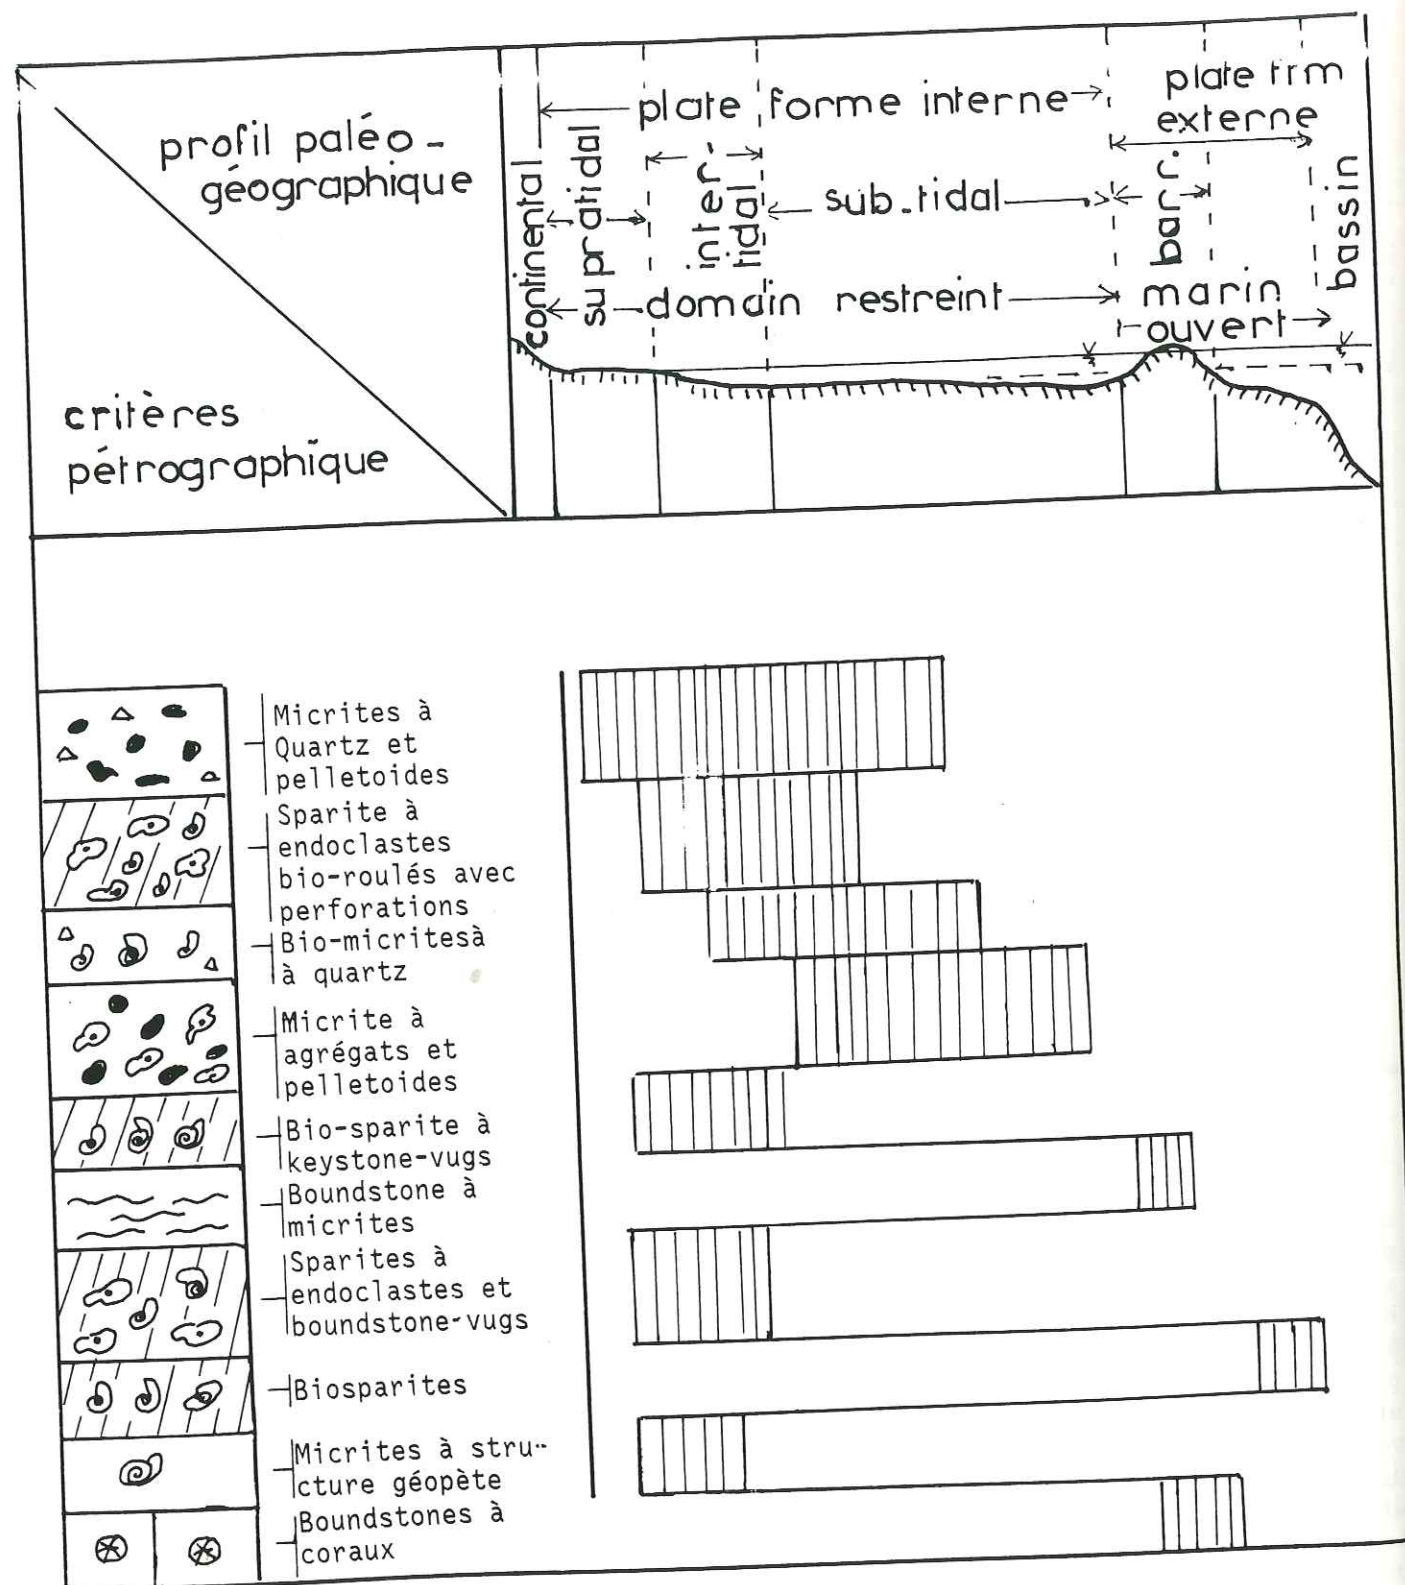 profil paléo-
géographique
critères
pétrographïque
continental
supratidal
plate forme interne
inter-
tidal
sub.tidal
domain restreint
plate frm
externe
barr.
marin
ouvert
bassin
Micrites à
Quartz et
pelletoides
Sparite à
endoclastes
bio-roulés avec
perforations
Bio-micritesà
à quartz
Micrite à
agrégats et
pelletoides
Bio-sparite à
keystone-vugs
Boundstone à
micrites
Sparites à
endoclastes et
boundstone-vugs
Biosparites
Micrites à stru-
cture géopète
Boundstones à
coraux